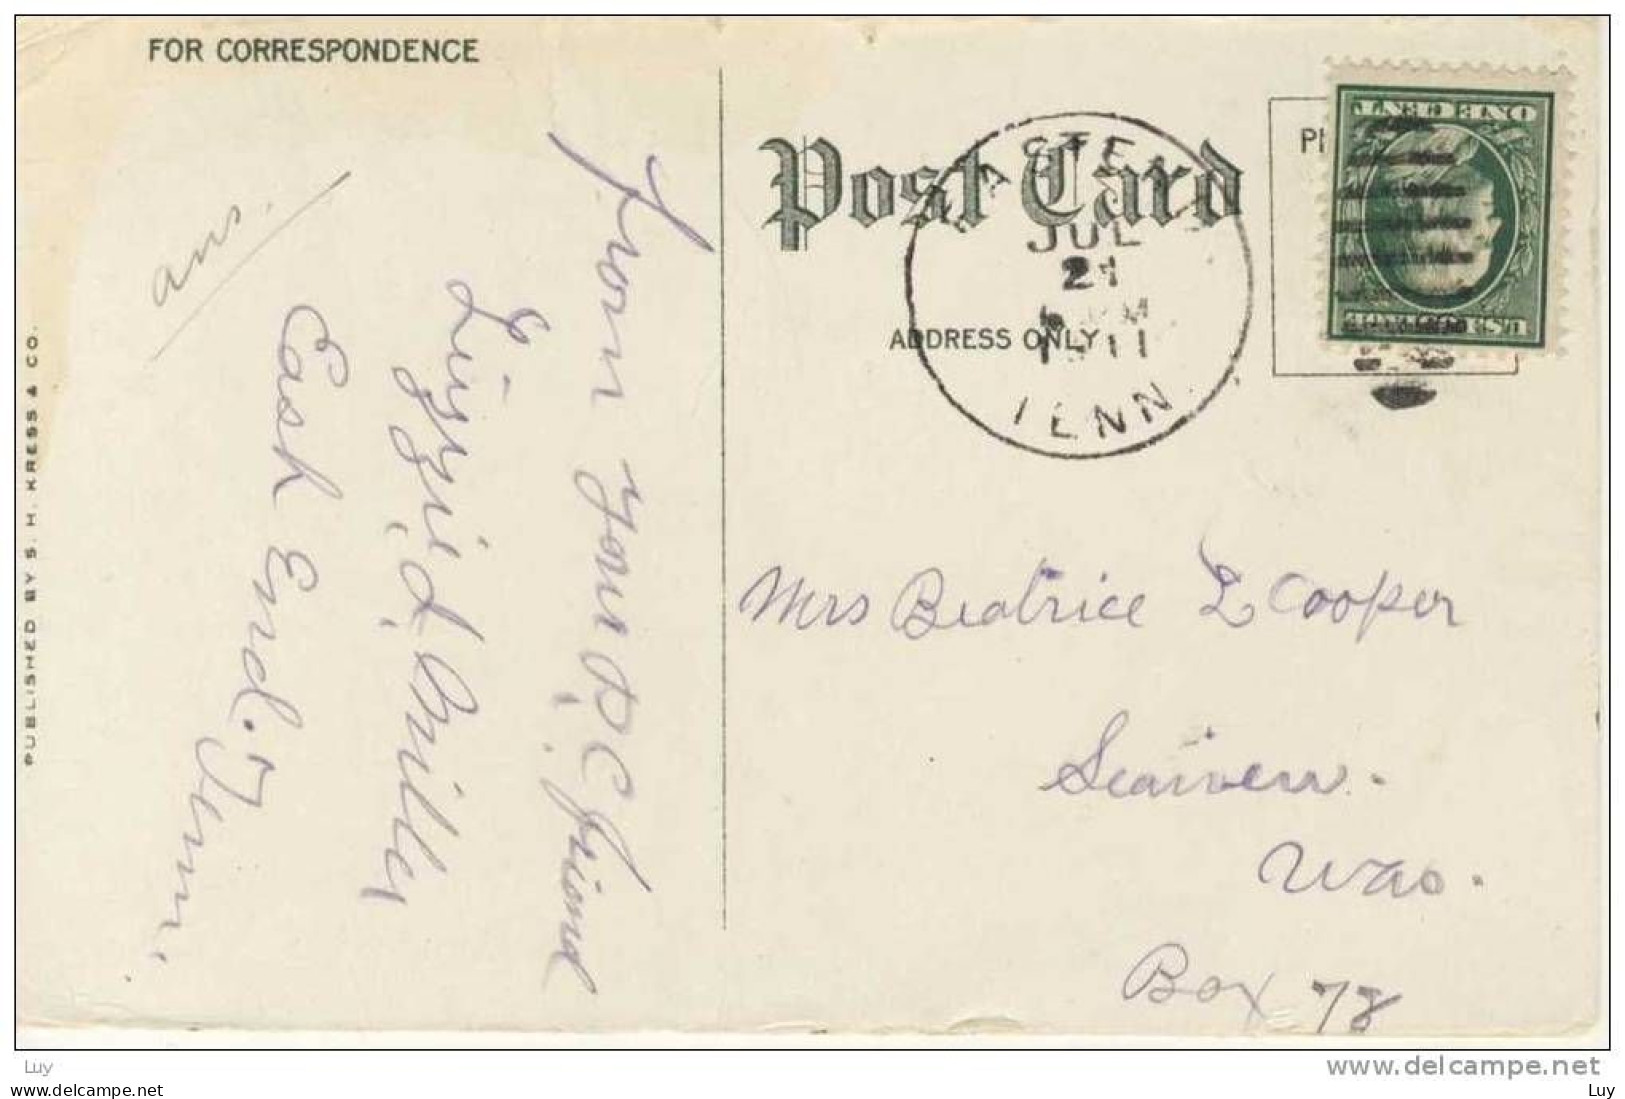 FOR CORRESPONDENCE
Post Card
ADDRESS ONLY
JUL
21
1911
TENN.
ONE CENT
U.S. POSTAGE
from your P. C. friend
Lizzie J. Miller
East End. Tenn.
ans.
Mrs Beatrice L Cooper
Was.
Box 78
PUBLISHED BY S. H. KRESS & CO.
delcampe.net
Luy
Luy
www.delcampe.net
Luy